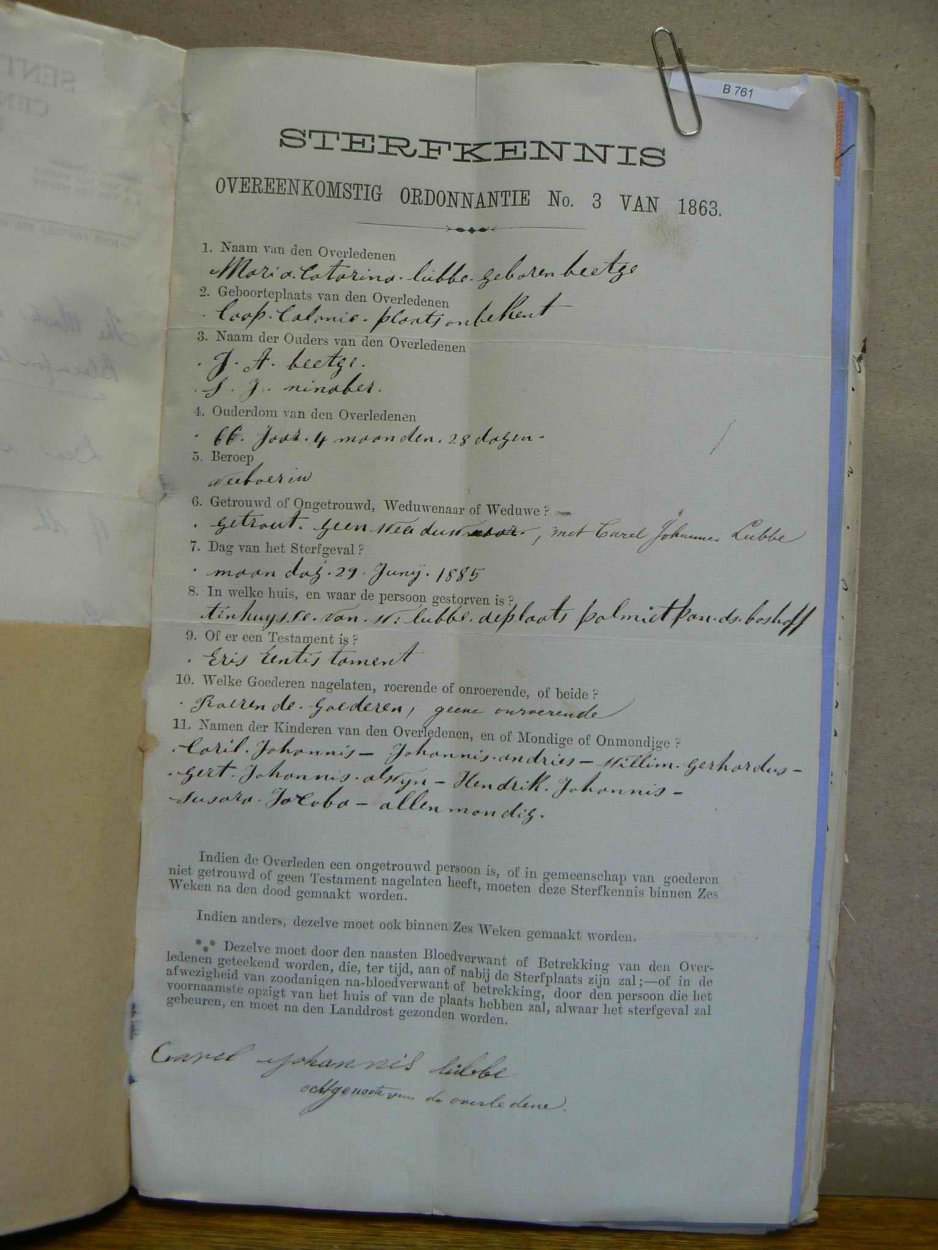 B 761
STERFKENNIS
OVEREENKOMSTIG ORDONNANTIE No. 3 VAN 1863.
1. Naam van den Overledenen
Maria. Catarina. lubbe. geboren beetge
2. Geboorteplaats van den Overledenen
Caap. Colonie. plaats onbekent
3. Naam der Ouders van den Overledenen
J. A. beetge.
S. J. ninaber.
4. Ouderdom van den Overledenen
66. Jaar. 4 maanden. 28 dagen.
5. Beroep
veeboerin
6. Getrouwd of Ongetrouwd, Weduwenaar of Weduwe?
getrout. geen , met Carel Johannes Lubbe
7. Dag van het Sterfgeval?
maandag. 29. Junij. 1885
8. In welke huis, en waar de persoon gestorven is?
van. W: lubbe. deplaats palmietpan. ds. boshoff
9. Of er een Testament is?
Eris Eentistament
10. Welke Goederen nagelaten, roerende of onroerende, of beide?
Roerende. Goederen, geene onroerende
11. Namen der Kinderen van den Overledenen, en of Mondige of Onmondige?
Caril. Johannis — Johannis. andries — Willim. gerhardus —
gert. Johannis. alwyn — Hendrik. Johannis —
Susara. Jacoba — allen mondig.
Indien de Overleden een ongetrouwd persoon is, of in gemeenschap van goederen
niet getrouwd of geen Testament nagelaten heeft, moeten deze Sterfkennis binnen Zes
Weken na den dood gemaakt worden.
Indien anders, dezelve moet ook binnen Zes Weken gemaakt worden.
Dezelve moet door den naasten Bloedverwant of Betrekking van den Over-
ledenen geteekend worden, die, ter tijd, aan of nabij de Sterfplaats zijn zal;—of in de
afwezigheid van zoodanigen na-bloedverwant of betrekking, door den persoon die het
voornaamste opzigt van het huis of van de plaats hebben zal, alwaar het sterfgeval zal
gebeuren, en moet na den Landdrost gezonden worden.
Carel Johannis lubbe
echtgenoote van de overledene.